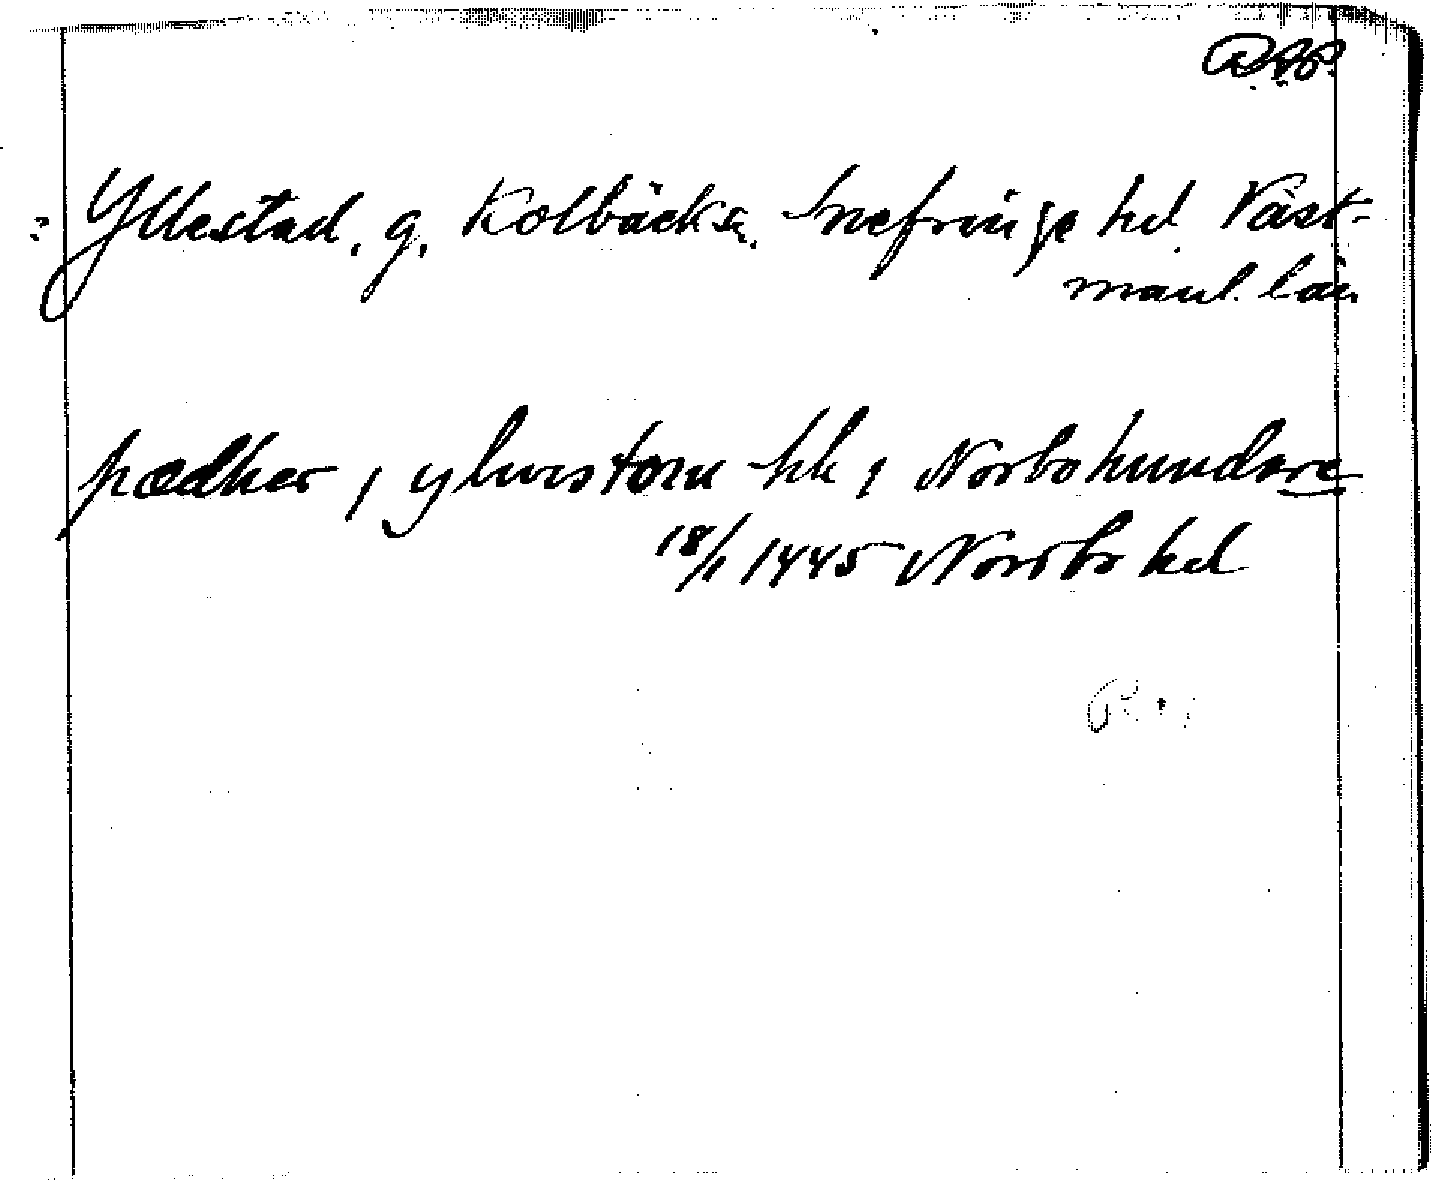 ? Yllestad, g, Kolbäcks sn. Snefringe hd. Väst-
manl. län
pædher i ylwistom hk i Norbohundare
18/1 1445 Norrbo hd